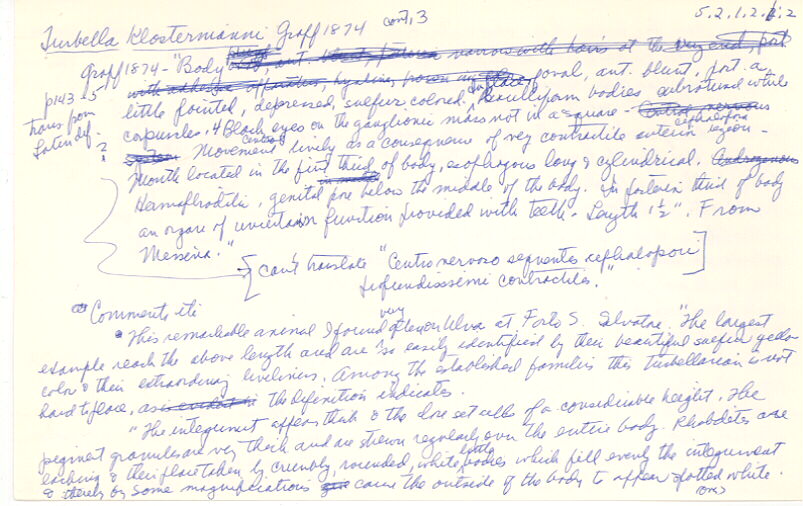 Turbella Klostermanni Graff 1874 cont, 3
5.2.1.2.1.2
Graff 1874 - "Body narrow with hairs at the very end, post
oval, ant. blunt, post. a
p143-5 little pointed, depressed, sulfur colored. bodies subrotund white
trans from corpuscles. 4 Black eyes on the ganglionic mass not in a square -
Latin dif. Movement lively as a consequence of very contractile anterior cephalopora region -
? Mouth located in the first central third of body, esophagous long & cylindrical.
Hermaphroditic, genital pore below the middle of the body. In posterior third of body
an organ of uncertain function provided with teeth - Length 1½". From
Messina."
[can't translate "Centro nervoso sequentes cephalopori
contractiles."]
Comments etc
"This remarkable animal I found very often on Ulva at Porto S. Salvatore. "The largest
example reach the above length and are so easily identified by their beautiful sulfur yellow
color & their extraordinary liveliness. Among the established families this turbellarian is not
hard to place, as the definition indicates.
"The integument appears thick & the close set cells of a considerable height. The
pigment granules are very thick and are strewn regularly over the entire body. Rhabdites are
lacking & their place taken by crumbly, rounded, white little bodies which fill evenly the integument
& thereby by some magnifications cause the outside of the body to appear spotted white.